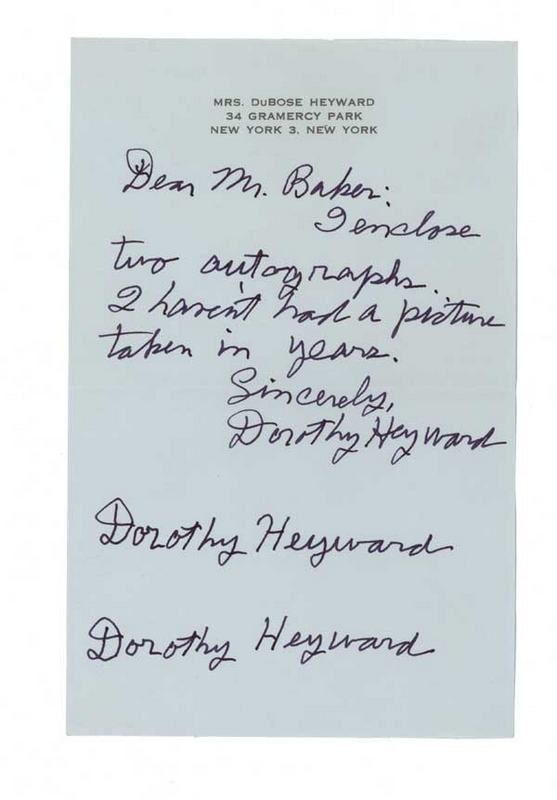 MRS. DuBOSE HEYWARD
34 GRAMERCY PARK
NEW YORK 3, NEW YORK
Dear Mr. Baker:
I enclose
two autographs.
I haven't had a picture
taken in years.
Sincerely,
Dorothy Heyward
Dorothy Heyward
Dorothy Heyward